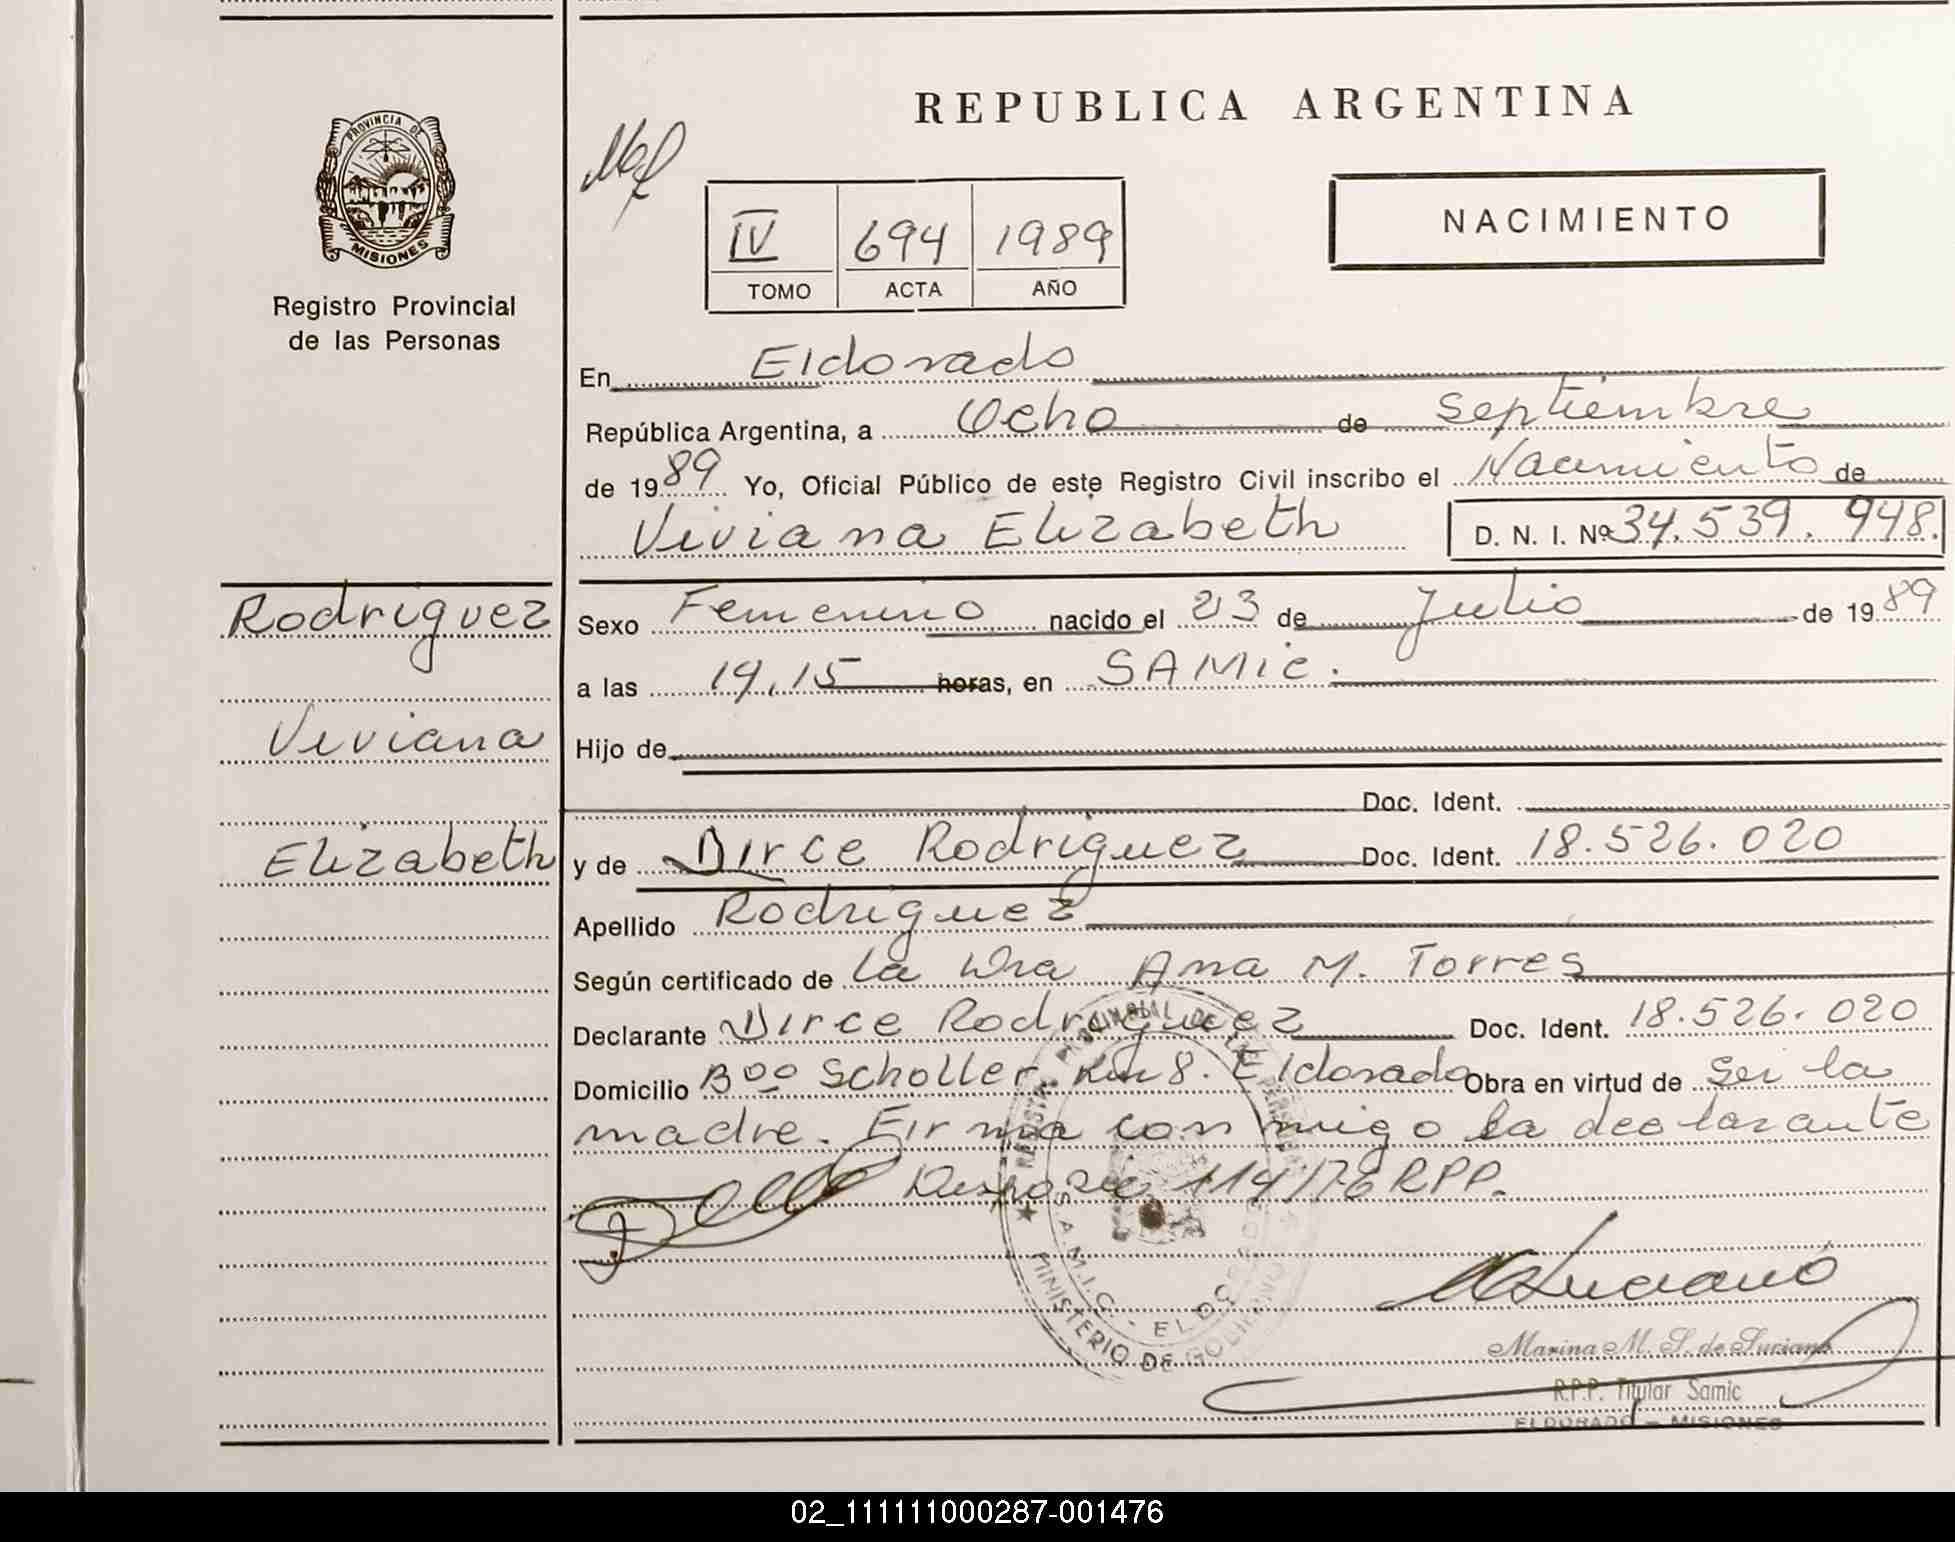 REPUBLICA ARGENTINA
PROVINCIA DE
MISIONES
Registro Provincial
de las Personas
IV 694 1989
TOMO ACTA AÑO
NACIMIENTO
En Eldorado
República Argentina, a Ocho de Septiembre
de 1989 Yo, Oficial Público de este Registro Civil inscribo el Nacimiento de
Viviana Elizabeth D. N. I. Nº 34.539.948.
Rodriguez
Viviana
Elizabeth
Sexo Femenino nacido el 23 de Julio de 1989
a las 19,15 horas, en SAMIC.
Hijo de
Doc. Ident.
y de Dirce Rodriguez Doc. Ident. 18.526.020
Apellido Rodriguez
Según certificado de la Dra Ana M. Torres
Declarante Dirce Rodriguez Doc. Ident. 18.526.020
Domicilio Bºº Scholler Km 8. Eldorado Obra en virtud de Ser la
madre. Firma conmigo la declarante
114/76 RPP.
REGISTRO PROVINCIAL DE LAS PERSONAS
S.A.M.I.C. - ELDORADO
MINISTERIO DE GOBIERNO
Marina M. S. de Luciano
R.P.P. Titular Samic
ELDORADO - MISIONES
02_111111000287-001476